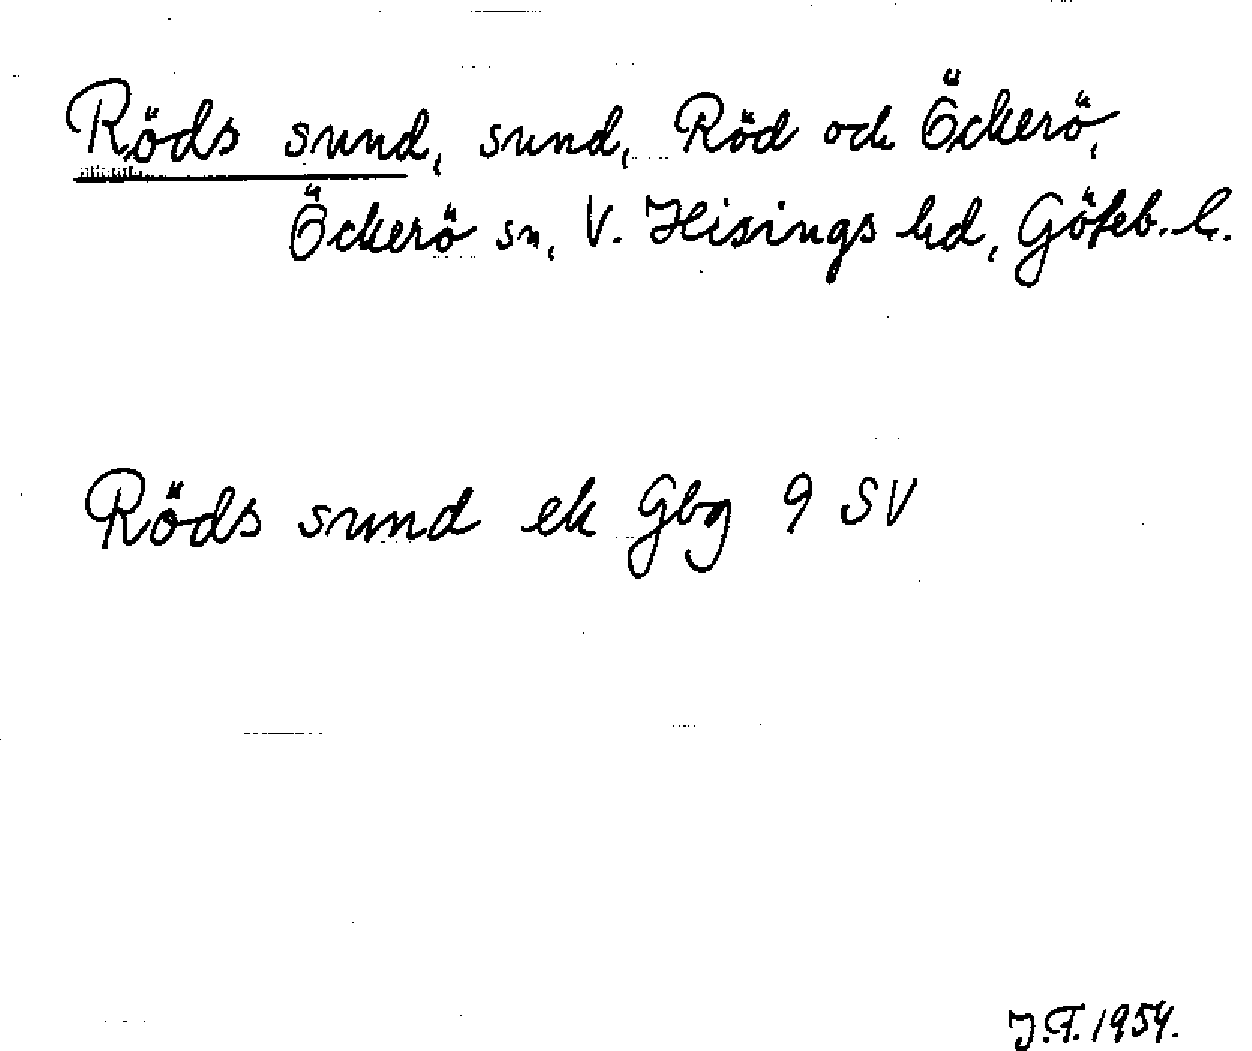 Röds sund, sund, Röd och Öckerö,
Öckerö sn, V. Hisings hd, Göteb. l.
Röds sund ek Gbg 9 SV
J.F. 1954.